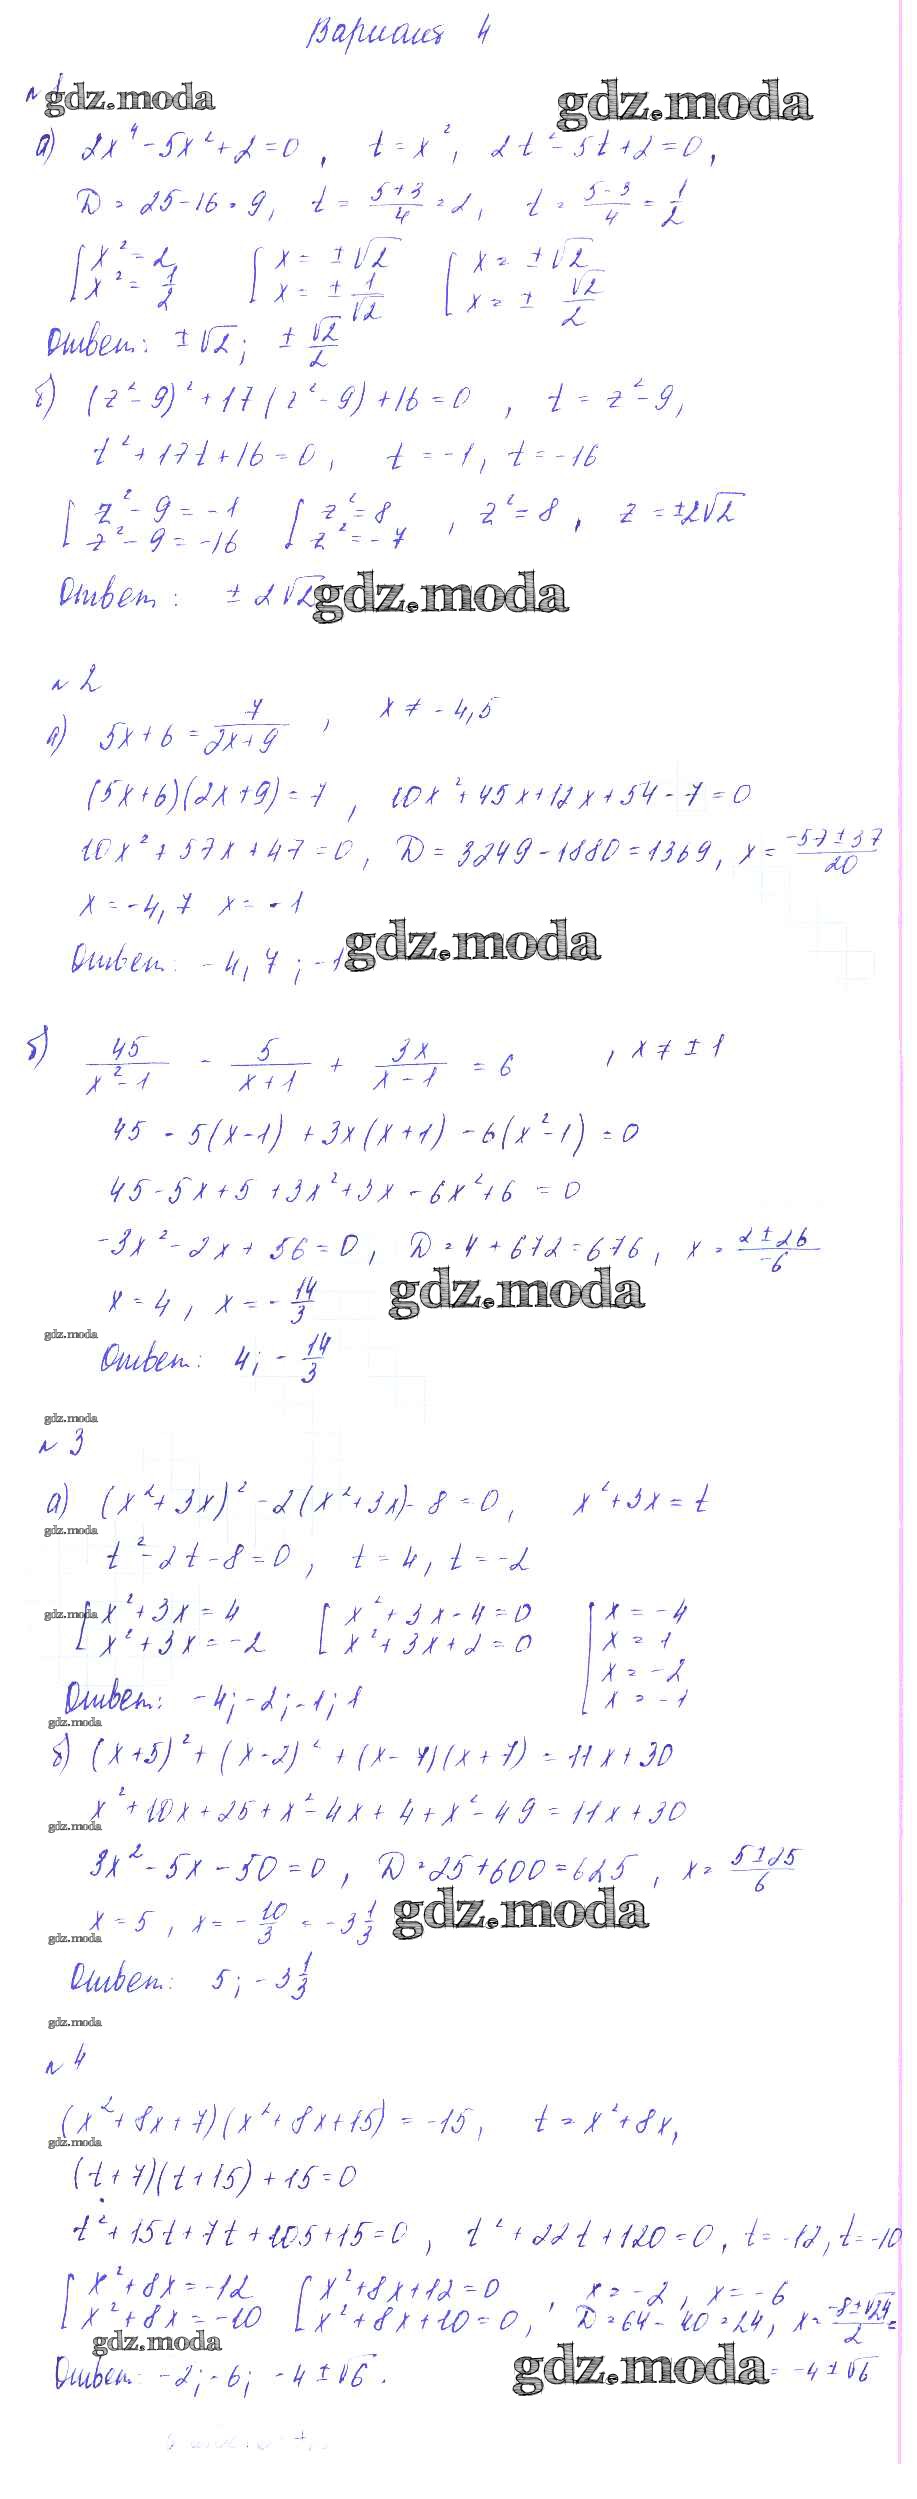 Вариант 4
№1
gdz.moda gdz.moda
а) 2x⁴ - 5x² + 2 = 0, t = x², 2t² - 5t + 2 = 0,
D = 25 - 16 = 9, t = (5+3)/4 = 2, t = (5-3)/4 = 1/2
[x² = 2 [x = ±√2 [x = ±√2
[x² = 1/2 [x = ± 1/√2 [x = ± √2/2
Ответ: ±√2; ± √2/2
б) (z² - 9)² + 17(z² - 9) + 16 = 0, t = z² - 9,
t² + 17t + 16 = 0, t = -1, t = -16
[z² - 9 = -1 [z² = 8, z² = 8, z = ±2√2
[z² - 9 = -16 [z² = -7
Ответ: ±2√2
gdz.moda
№2
а) 5x + 6 = 7/(2x+9), x ≠ -4,5
(5x+6)(2x+9) = 7, 10x² + 45x + 12x + 54 - 7 = 0
10x² + 57x + 47 = 0, D = 3249 - 1880 = 1369, x = (-57±37)/20
x = -4,7 x = -1
Ответ: -4,7; -1
gdz.moda
б) 45/(x²-1) - 5/(x+1) + 3x/(x-1) = 6, x ≠ ±1
45 - 5(x-1) + 3x(x+1) - 6(x²-1) = 0
45 - 5x + 5 + 3x² + 3x - 6x² + 6 = 0
-3x² - 2x + 56 = 0, D = 4 + 672 = 676, x = (2±26)/-6
x = 4, x = -14/3
gdz.moda
gdz.moda
Ответ: 4; -14/3
gdz.moda
№3
а) (x² + 3x)² - 2(x² + 3x) - 8 = 0, x² + 3x = t
gdz.moda
t² - 2t - 8 = 0, t = 4, t = -2
gdz.moda
[x² + 3x = 4 [x² + 3x - 4 = 0 [x = -4
[x² + 3x = -2 [x² + 3x + 2 = 0 x = 1
x = -2
x = -1
Ответ: -4; -2; -1; 1
gdz.moda
б) (x+5)² + (x-2)² + (x-7)(x+7) = 11x + 30
x² + 10x + 25 + x² - 4x + 4 + x² - 49 = 11x + 30
gdz.moda
3x² - 5x - 50 = 0, D = 25 + 600 = 625, x = (5±25)/6
x = 5, x = -10/3 = -3 1/3
gdz.moda
gdz.moda
Ответ: 5; -3 1/3
gdz.moda
№4
(x² + 8x + 7)(x² + 8x + 15) = -15, t = x² + 8x,
gdz.moda
(t+7)(t+15) + 15 = 0
t² + 15t + 7t + 105 + 15 = 0, t² + 22t + 120 = 0, t = -12, t = -10
[x² + 8x = -12 [x² + 8x + 12 = 0, x = -2, x = -6
[x² + 8x = -10 [x² + 8x + 10 = 0, D = 64 - 40 = 24, x = (-8±√24)/2 =
gdz.moda
gdz.moda
= -4±√6
Ответ: -2; -6; -4±√6.